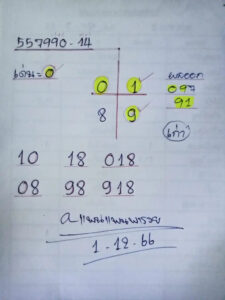 557990-14
เด่น=0
0 1
8 9
ผลออก
097
91
เก่า
10 18 018
08 98 918
1-12-66